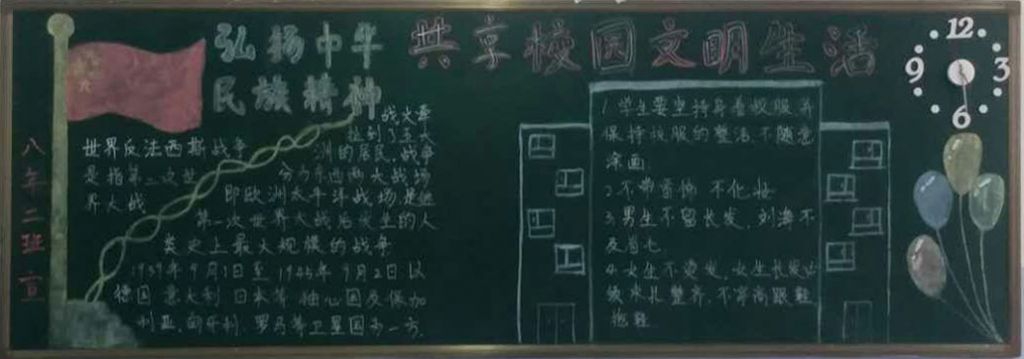 八年二班宣
弘扬中华
民族精神
世界反法西斯战争
是指第二次世
界大战
战火牵
拉到了五大
洲的居民,战争
分为东西两大战场
即欧洲太平洋战场是继
第一次世界大战后发生的人
类史上最大规模的战争
1939年9月1日至1945年9月2日以
德国 意大利 日本等轴心国及保加
利亚,匈牙利,罗马等卫星国为一方.
共享校园文明生活
1.学生要坚持身着校服并
保持校服的整洁不随意
涂画.
2.不带首饰 不化妆
3.男生不留长发,刘海不
及眉毛
4.女生不烫发,女生长发必
须束扎整齐,不穿高跟鞋
拖鞋
12
9 3
6